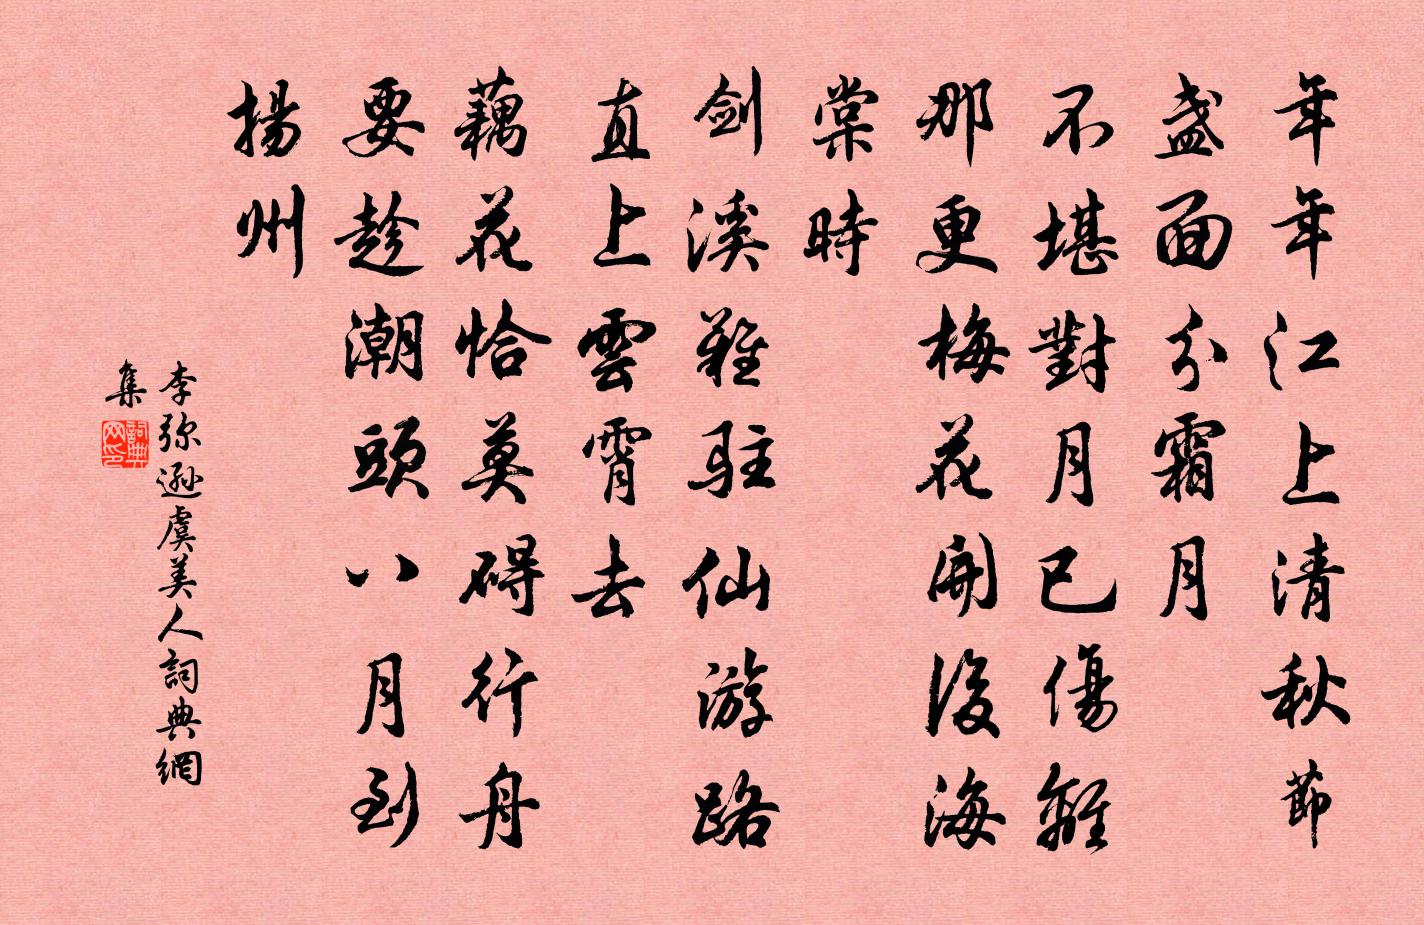 年年江上清秋節
盞面分霜月
不堪對月已傷離
那更梅花開後海
棠時
劍溪難駐仙游路
直上雲霄去
藕花恰莫礙行舟
要趁潮頭八月到
揚州
李弥遜虞美人詞典網
集
詞典
网印